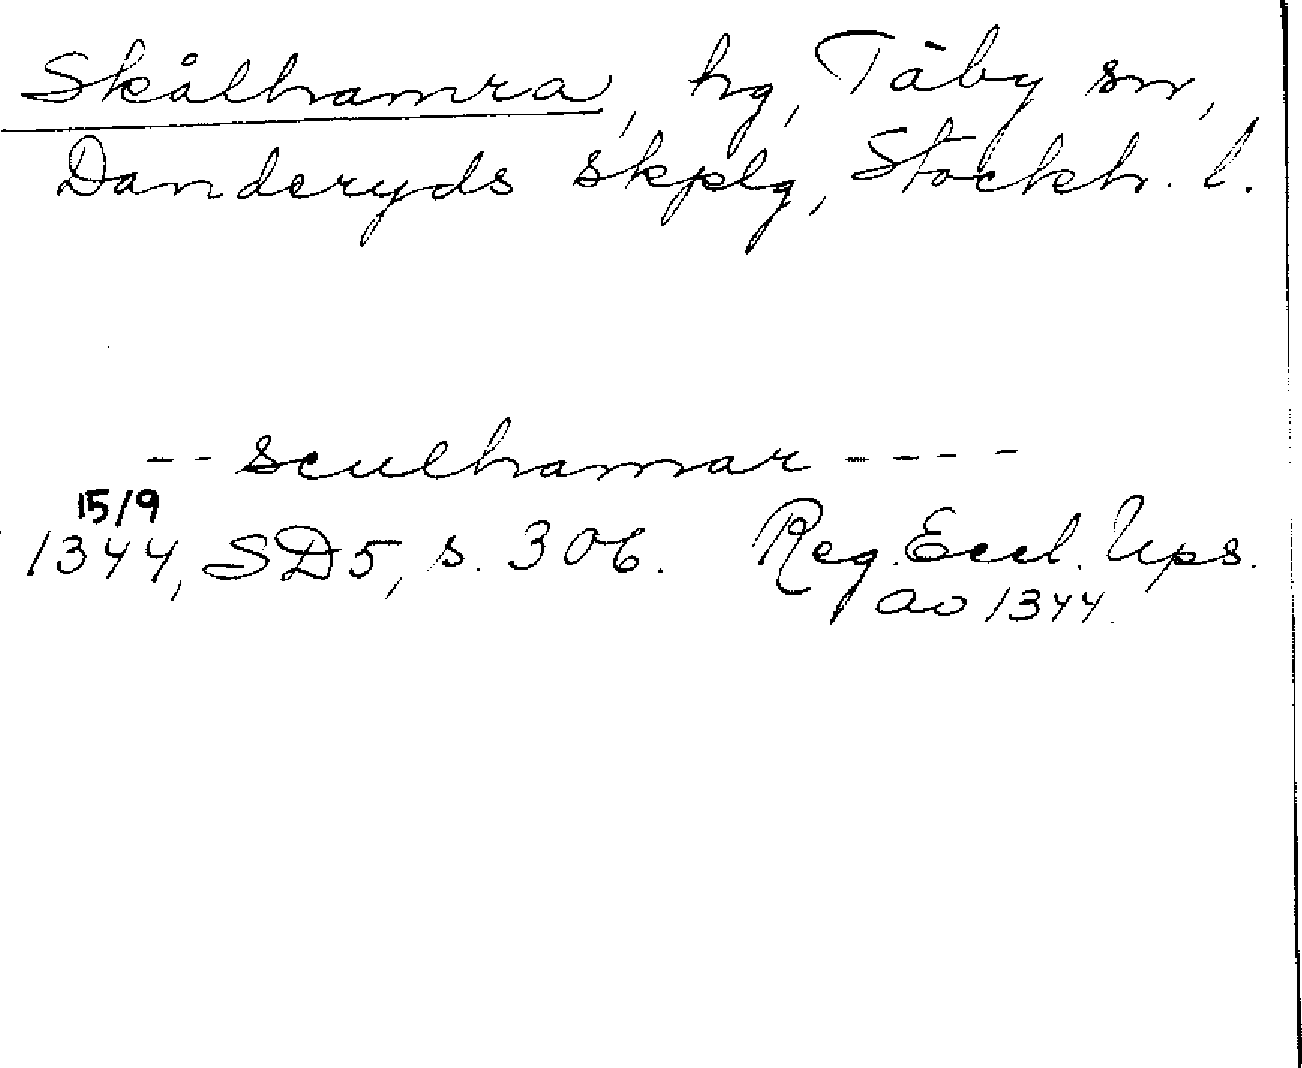 Skålhamra, hg, Täby sn,
Danderyds skplg, Stockh. l.
-- sculhamar ----
15/9
1344, SD5, s. 306. Reg. Eccl. Ups.
ao 1344.